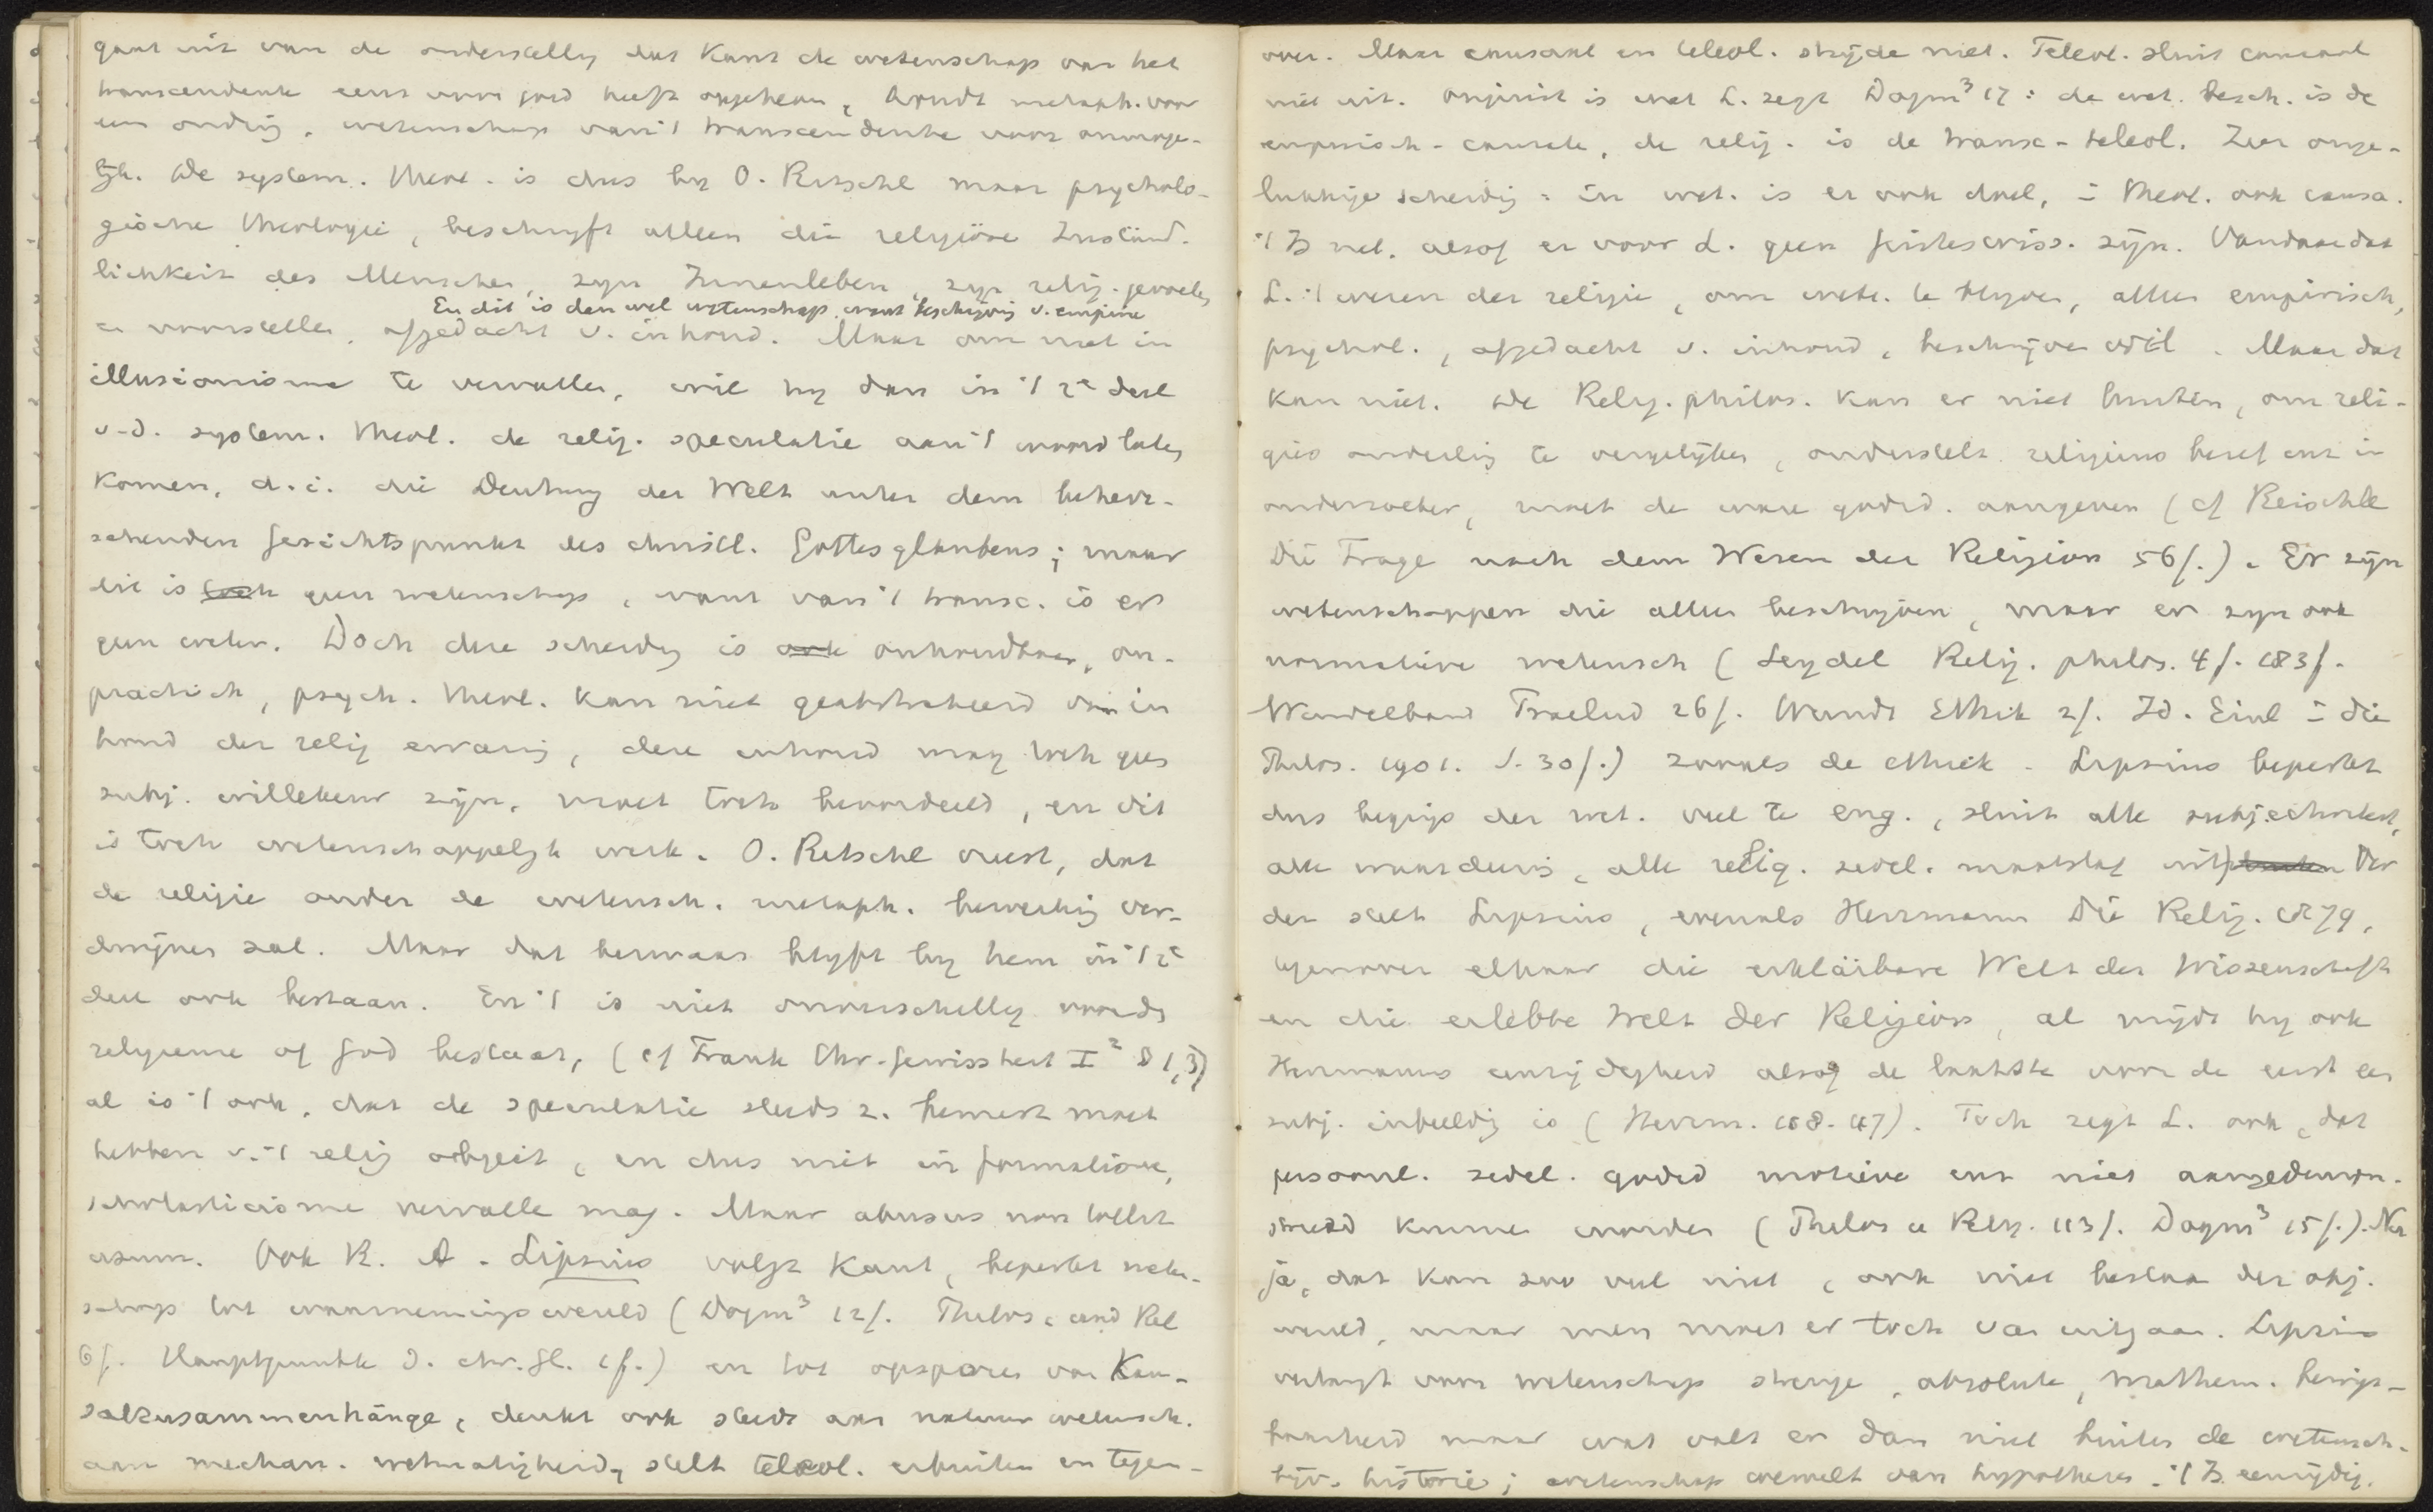 gaat uit van de onderstelling dat Kant de wetenschap van het
transcendente eens voor goed heeft opgeheven, houdt metaph. voor
een onding, wetenschap van 't transcendente voor onmoge-
lijk. De system. theol. is dus by O. Ritschl maar psycholo-
gische theologie, beschryft alleen die religiöse Zuständ-
lichkeit des Menschen, zyn Innenleben, zyn relig. gevoelen
En dit is dan wel wetenschap, want beschrijving v. empirie
en voorstellen, afgedacht v. inhoud. Maar om niet in
illusionisme te vervallen, wil hy dan in 't 2e deel
v. d. system. theol. de relig. speculatie aan 't woord laten
komen, d. i. die Deutung der Welt unter dem beherr-
schenden Gesichtspunkt des christl. Gottesglaubens; maar
dit is geen wetenschap, want van 't transc. is er
geen weten. Doch deze scheiding is onhoudbaar, on-
practisch, psych. theol. kan niet geabstraheerd van in
houd der relig ervaring, deze inhoud mag toch geen
subj. willekeur zijn, moet toch beoordeeld, en dit
is toch wetenschappelijk werk. O. Ritschl vreest, dat
de religie onder de wetensch. metaph. bewerking ver-
dwijnen zal. Maar dat bezwaar blyft by hem in 't 2e
deel ook bestaan. En 't is niet onverschillig voor de
religieuse of God bestaat, (cf Frank Chr. Gewissheit I² § 1,3)
al is 't ook, dat de speculatie steeds z. bewust moet
hebben v. 't relig object, en dus niet in formalisme,
scholasticisme vervalle mag. Maar abusus non tollit
usum. Ook R. A. Lipsius volgt Kant, beperkt weten-
schap tot waarnemingswereld (Dogm³ 12f. Philos. und Rel
6f. Hauptpunkte d. chr. Gl. 1f.) en tot opsporen van Kau-
salzusammenhänge, denkt ook steeds aan natuurwetensch.
aan mechan. wetmatigheid, stelt teleol. erbuiten en tegen-
over. Maar causaal en teleol. stryde niet. Teleol. sluit causaal
niet uit. Onjuist is wat L. zegt Dogm³ 17: de wet. besch. is de
empirisch-causale, de relig. is de transc-teleol. Zeer onge-
lukkige scheiding: in wet. is er ook doel, in theol. ook causa.
't Is net, alsof er voor L. geen Geisteswiss. zijn. Vandaar dat
L. 't wezen der religie, om wete. te blijven, alleen empirisch,
psychol., afgedacht v. inhoud, beschrijven wil. Maar dat
kan niet. De Relig. philos. kan er niet buiten, om reli-
gies onderling te vergelijken, onderstelt religieus besef enz in
onderzoeker, moet de ware godsd. aangeven (cf Reischle
Die Frage nach dem Wesen der Religion 56f.). Er zijn
wetenschappen die alleen beschryven, maar er zyn ook
normatieve wetensch (Seydel Relig. philos. 4f. 183f.
Windelband Praelud 26f. Wundt Ethik 2f. Id. Einl in die
Philos. 1901. S. 30f.) zooals de ethiek. Lipsius beperkt
dus begrip der wet. veel te eng., sluit alle subjectiviteit,
alle waardeering, alle relig. zedel. maatstaf uit. Ver
der stelt Lipsius, evenals Herrmann Die Relig. 1879,
tegenover elkaar die erklärbare Welt der Wissenschaft
en die erlebte Welt der Religion, al mijdt hy ook
Herrmanns eenzijdigheid alsof de laatste voor de eerste een
subj. inbeelding is (Herrm. 108. 117). Toch zegt L. ook, dat
persoonl. zedel. godsd motieve enz niet aangedemon-
streerd kunnen worden (Philos u Relig. 113f. Dogm³ 15f.). Nu
ja, dat kan zoo veel niet, ook niet bestaan der obj.
wereld, maar men moet er toch van uitgaan. Lipsius
verlangt voor wetenschap strenge, absolute, mathem. bewijs-
baarheid maar wat valt er dan niet buiten de wetensch.
bijv. historie; wetenschap wemelt van hypothesen. 't Is eenzijdig.